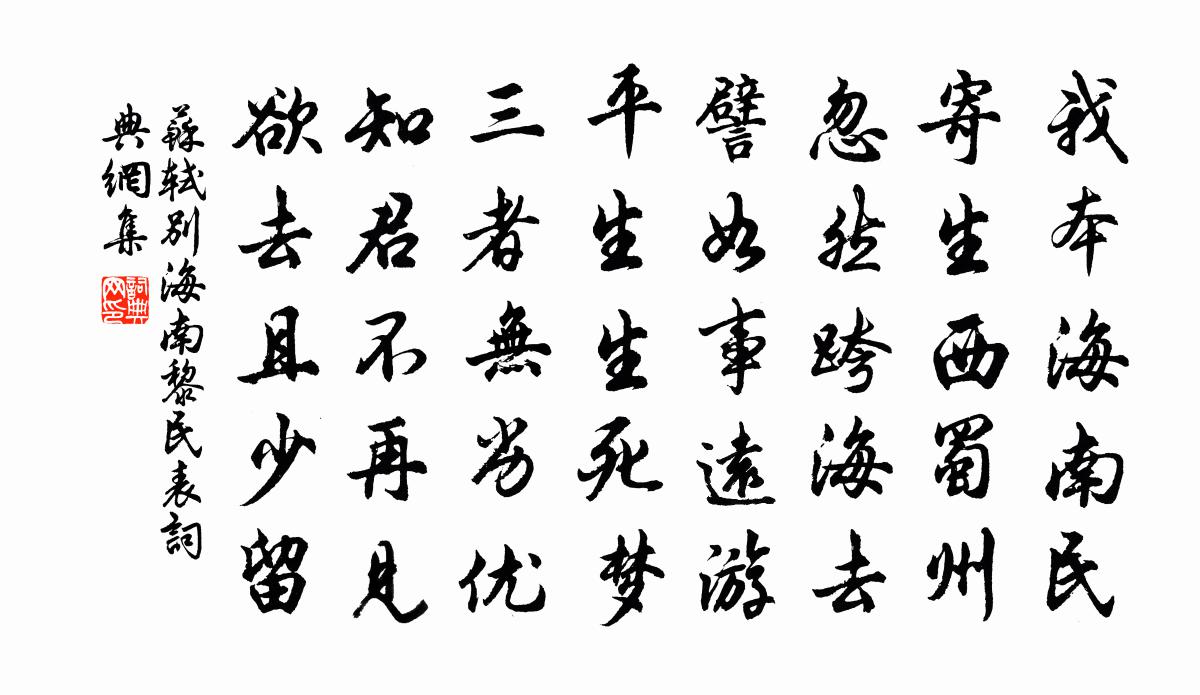 我本海南民
寄生西蜀州
忽然跨海去
譬如事遠游
平生生死梦
三者無劣优
知君不再見
欲去且少留
蘇軾別海南黎民表詞
典網集
詞典
网印